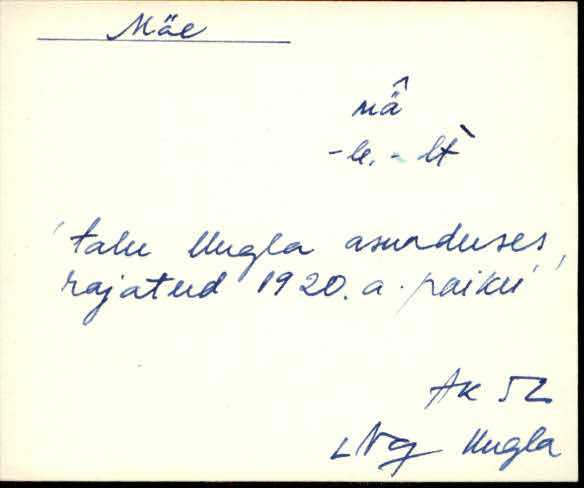 Mäe
mä̂
-le, -lt̀
'talu Uugla asunduses,
rajatud 1920. a. paiku'
AK 52
LNg Uugla